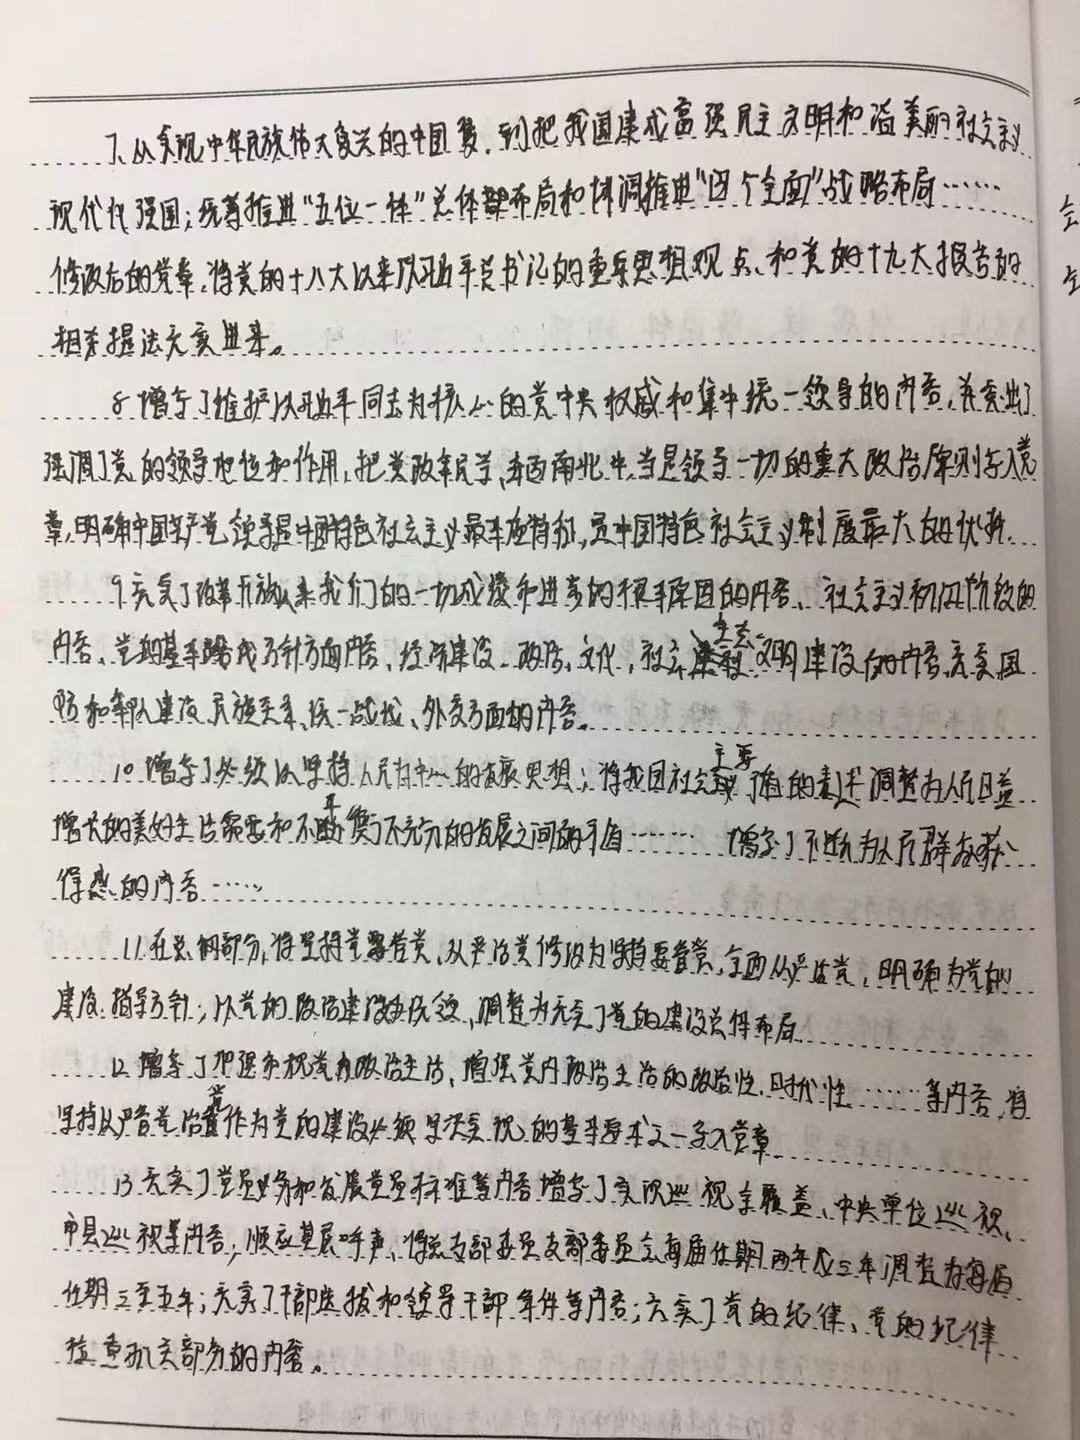 7、从实现中华民族伟大复兴的中国梦,到把我国建成富强民主文明和谐美丽社会主义
现代化强国;统筹推进“五位一体”总体布局和协调推进“四个全面”战略布局……
修改后的党章,将党的十八大以来以习近平总书记的重要思想观点、和党的十九大报告的
相关提法充实进来。
8、增写了维护以习近平同志为核心的党中央权威和集中统一领导的内容,并突出了
强调了党的领导地位和作用,把党政军民学,东西南北中,党是领导一切的重大政治原则写入党
章,明确中国共产党领导是中国特色社会主义最本质特征,是中国特色社会主义制度最大的优势.
9、充实了改革开放以来我们的一切成绩和进步的根本原因的内容、社会主义初级阶段的
内容、党的基本路线方针方面内容,经济建设、政治、文化,社会、生态文明建设的内容,充实国
防和军队建设、民族关系、统一战线、外交方面的内容。
10、增写了必须以坚持人民为中心的发展思想;将我国社会主要矛盾的表述调整为人民日益
增长的美好生活需要和不平衡不充分的发展之间的矛盾…… 增写了不断为人民群众获
得感的内容……
11.在总纲部分,将坚持党要管党,从严治党修改为坚持党要管党,全面从严治党,明确为党的
建设指导方针;以党的政治建设为统领,调整为充实了党的建设总体布局
12、增写了加强和规范党内政治生活、增强党内政治生活的政治性.时代性……等内容,将
坚持从严管党治党作为党的建设必须坚决实现的基本要求之一写入党章
13、充实了党员义务和发展党员标准等内容增写了实现巡视全覆盖、中央单位巡视、
市县巡视等内容;顺应基层呼声,将总支部委员支部委员会每届任期两年及三年调整为每届
任期三至五年;充实了干部选拔和领导干部条件等内容;充实了党的纪律、党的纪律
检查机关部分的内容。